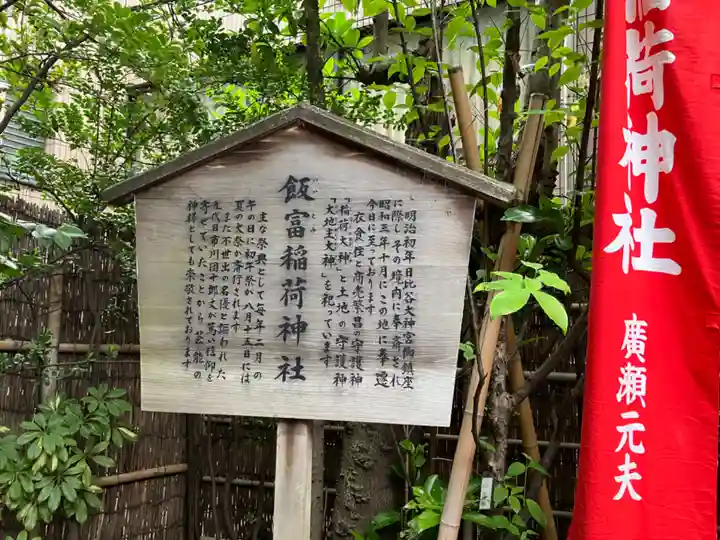 明治初年日比谷大神宮御鎮座
に際し、その境内に奉斎され
昭和三年十月にこの地に奉遷
今日に至っております
衣食住と商売繁昌の守護神
「稲荷大神」と土地の守護神
「大地主大神」を祀っています
飯富稲荷神社
いいとみ
主な祭典として毎年二月の
午の日に初午祭が八月十五日には
夏の大祭が斎行されます
また不世出の名優と謳われた
九代目市川団十郎丈が篤い信仰を
寄せていたことから芸能の
神様としても崇敬されております
稲荷神社
廣瀬元夫